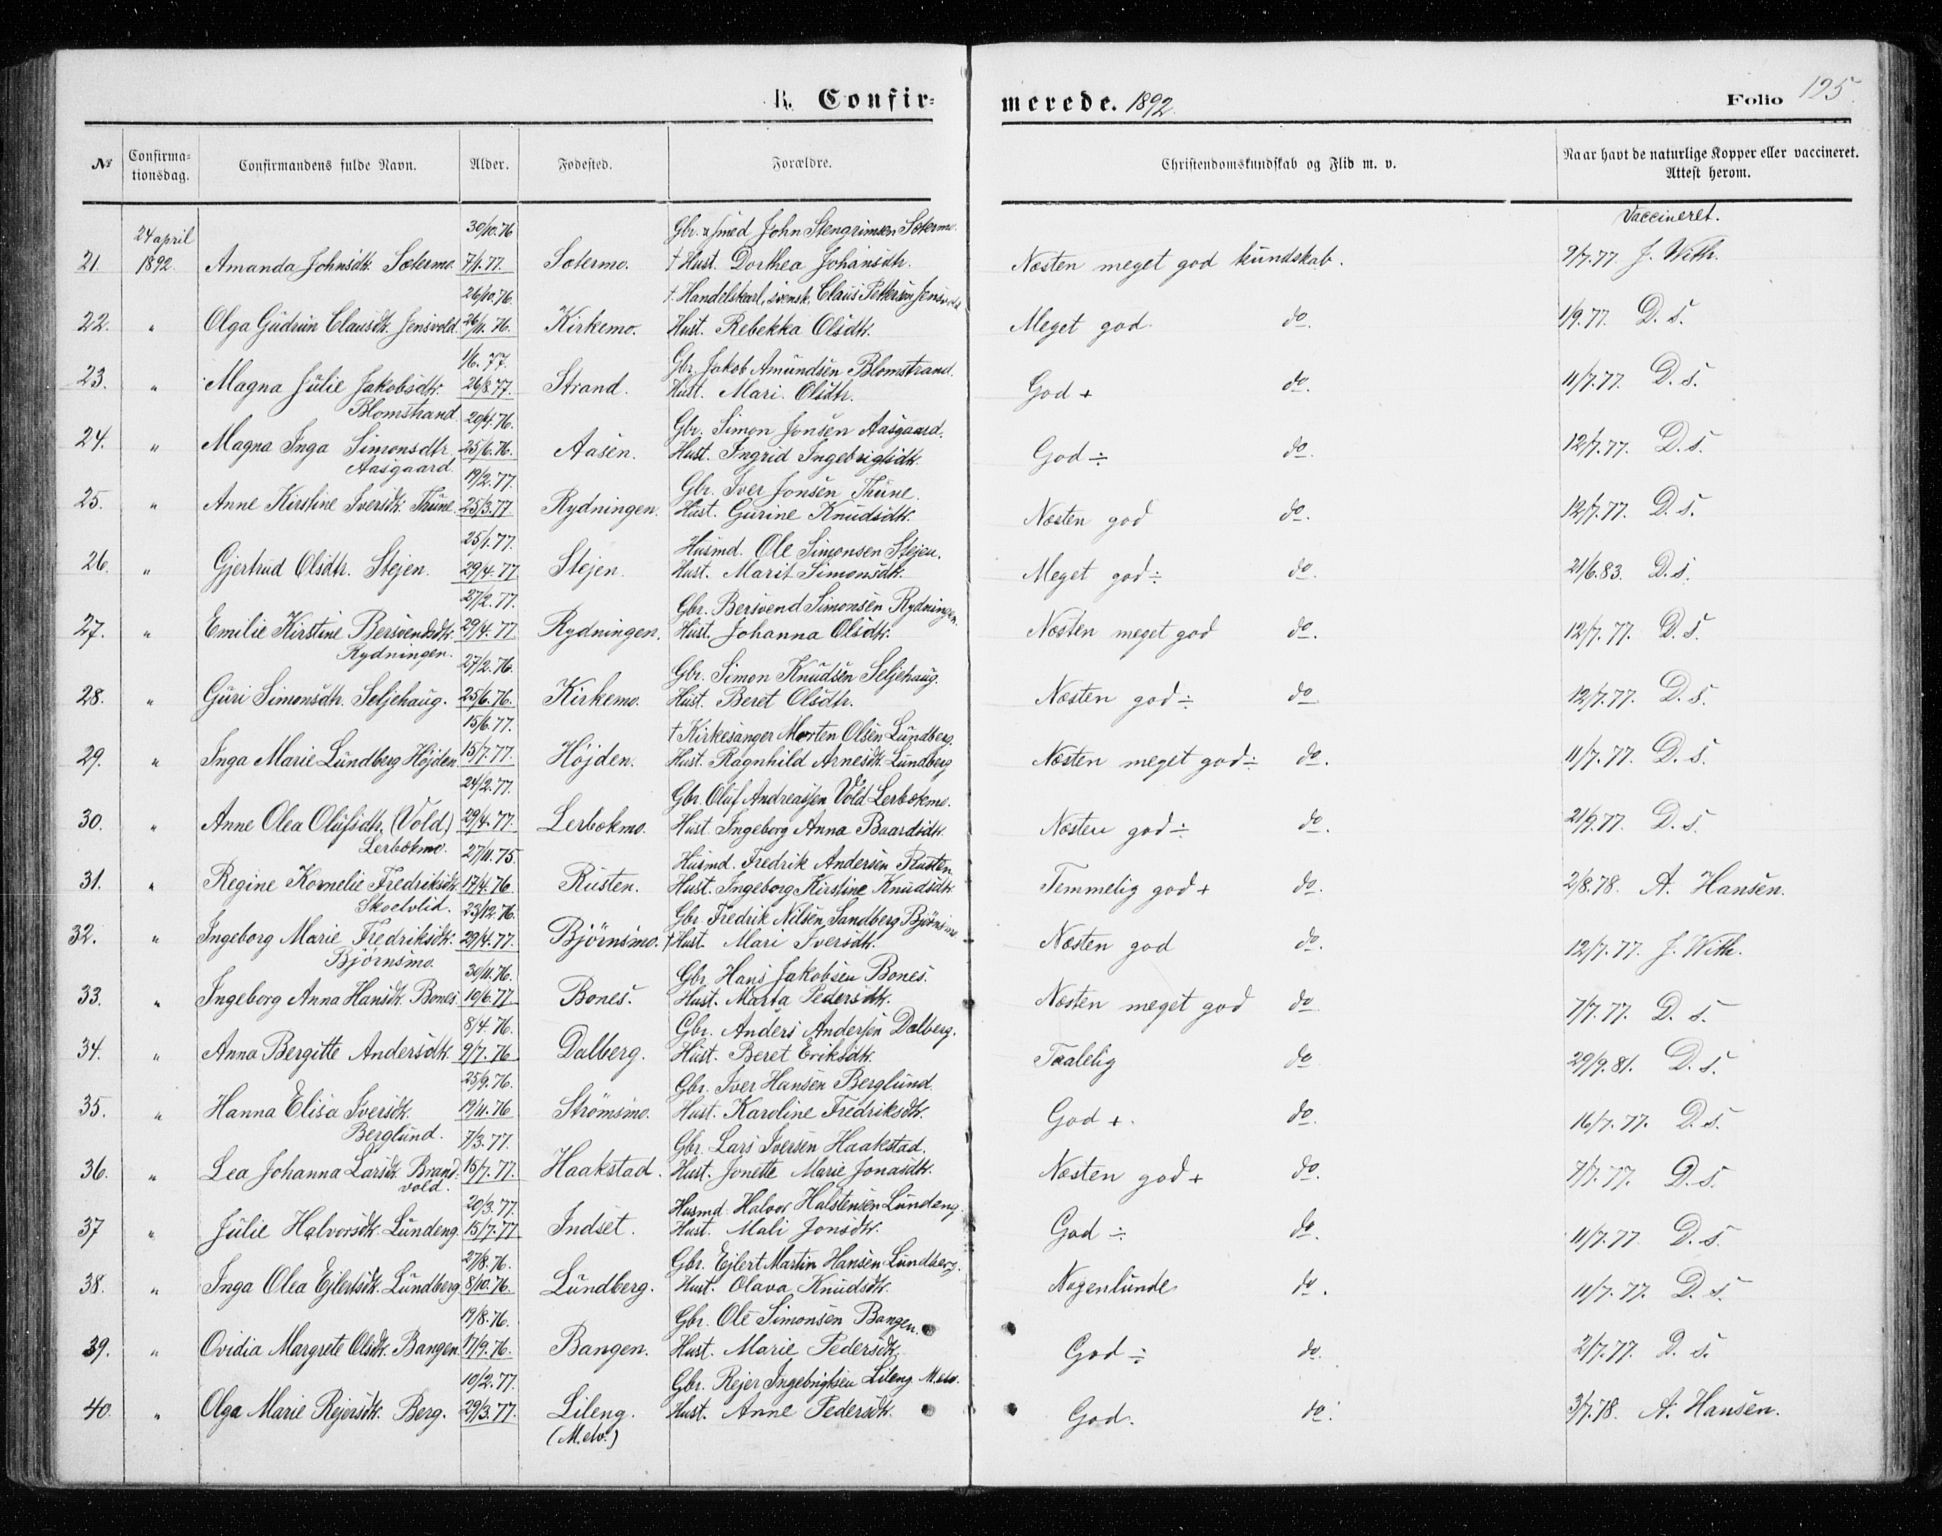 K. Confirmerede. 1892. Folio 125.
№ Confirmationsdag. Confirmandens fulde Navn. Alder. Fødested. Forældre. Christendomskundskab og Flid m. v. Naar havt de naturlige Kopper eller vaccineret. Attest herom.
24 april 30/10.76 Gbr. & smed John Stengrimsen Sætermo. Vaccineret.
21. 1892. Amanda Johnsdtr. Sætermo. 7/1.77. Sætermo. † Hust. Dorthea Johansdtr. Næsten meget god kundskab. 9/7.77. J. With.
26/10.76. † Handelskarl, svensk, Claus Petterson Jensvold
22. " Olga Gudrun Clausdtr. Jensvold. 26/11.76. Kirkemo. Hust. Rebekka Olsdtr. Meget god do. 1/9.77. D. S.
1/6.77. Gbr. Jakob Amundsen Blomstrand.
23. " Magna Julie Jakobsdtr. 26/8.77. Strand. Hust. Mari Olsdtr. God + do. 11/7.77. D. S.
Blomstrand 20/4.76. Gbr. Simon Jonsen Aasgaard.
24. " Magna Inga Simonsdtr. 25/6.76. Aasen. Hust. Ingrid Ingebrigtsdtr. God ÷ do. 12/7.77. D. S.
Aasgaard 19/2.77. Gbr. Iver Jonsen Thune.
25. " Anne Kirstine Iversdtr. Thune. 25/3.77 Rydningen. Hust. Gurine Knudsdtr. Næsten god do. 12/7.77. D. S.
25/1.77. Husmd. Ole Simonsen Stejen.
26. " Gjertrud Olsdtr. Stejen. 29/4.77 Stejen. Hust. Marit Simonsdtr. Meget god ÷ do. 21/6.83. D. S.
27/2.77. Gbr. Bersvend Simonsen Rydningen.
27. " Emilie Kirstine Bersvendsdtr. 29/4.77 Rydningen. Hust. Johanna Olsdtr. Næsten meget god do. 12/7.77. D. S.
Rydningen. 27/2.76. Gbr. Simon Knudsen Seljehaug.
28. " Guri Simonsdtr. Seljehaug. 25/6.76. Kirkemo. Hust. Beret Olsdtr. Næsten god ÷ do 12/7.77. D. S.
15/6.77. † Kirkesanger Morten Olsen Lundberg.
29. " Inga Marie Lundberg Højden 15/7.77. Højden. Hust. Ragnhild Arnesdtr. Lundberg Næsten meget god ÷ do. 11/7.77. D. S.
24/2.77. Gbr. Oluf Andreassen Vold Lerbækmo.
30. " Anne Olea Olufsdtr. (Vold) 29/4.77. Lerbækmo. Hust. Ingeborg Anna Baardsdtr. Næsten god ÷ do. 21/9.77. D. S.
Lerbækmo. 27/11.75 Husmd. Fredrik Andersen Rusten
31. " Regine Kornelie Fredriksdtr. 17/4.76 Rusten. Hust. Ingeborg Kirstine Knudsdtr. Temmelig god + do. 2/8.78. A. Hansen.
Skoelvlid. 23/12.76. Gbr. Fredrik Nilsen Sandberg Bjørnsmo
32. " Ingeborg Marie Fredriksdtr. 29/4.77. Bjørnsmo. † Hust. Mari Iversdtr. Næsten god do. 12/7.77. J. With.
Bjørnsmo. 30/11.76. Gbr. Hans Jakobsen Bones.
33. " Ingeborg Anna Hansdtr. Bones. 10/6.77 Bones. Hust. Marta Pedersdtr. Næsten meget god do 7/7.77. D. S.
8/4.76. Gbr. Anders Andersen Dalberg.
34. " Anna Bergitte Andersdtr. 9/7.76 Dalberg. Hust. Beret Eriksdtr. Taalelig do 29/9.81. D. S.
25/9.76. Gbr. Iver Hansen Berglund.
35. " Hanna Elisa Iversdtr. 19/11.76 Strømsmo. Hust. Karoline Fredriksdtr. God +. do. 16/7.77. D. S.
Berglund. 7/3.77. Gbr. Lars Iversen Haakstad.
36. " Lea Johanna Larsdtr. Brand- 15/7.77. Haakstad. Hust. Jonette Marie Jonasdtr. Næsten god + do. 7/7.77. D. S.
vold. 20/3.77. Husmd. Halvor Halstensen Lundeng.
37 " Julie Halvorsdtr. Lundeng. 15/7.77 Indset. Hust. Mali Jonsdtr. God ÷ do. 11/7.77. D. S.
27/8.76. Gbr. Ejlert Martin Hansen Lundberg.
38. " Inga Olea Ejlertsdtr. Lundberg 8/10.76. Lundberg. Hust. Olava Knudsdtr. Nogenlunde do. 11/7.77. D. S.
19/8.76. Gbr. Ole Simonsen Bangen.
39. " Ovidia Margrete Olsdtr. Bangen. 17/9.76. Bangen. Hust. Marie Pedersdtr. God ÷ do. 2/7.77. D. S.
10/2.77. Gbr. Rejer Ingebrigtsen Lileng M.elv.
40. " Olga Marie Rejersdtr. Berg. 29/3.77. Lileng. Hust. Anne Pedersdtr. God. do. 3/7.78. A. Hansen.
(M.elv.)